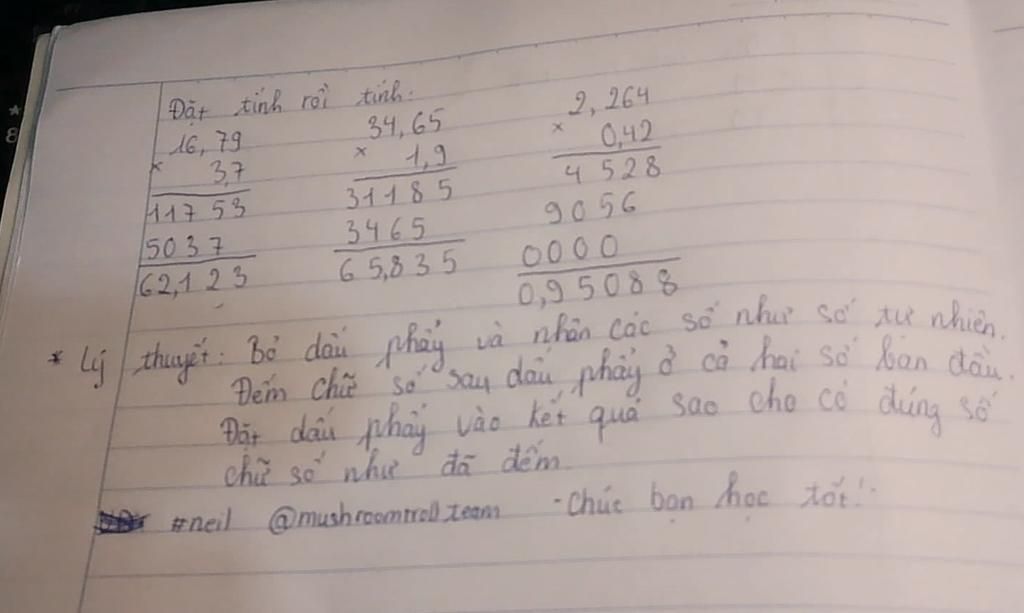 Đặt tính rồi tính:
16,79
× 3,7
11753
5037
62,123
34,65
× 1,9
31185
3465
65,835
2,264
× 0,42
4528
9056
0000
0,95088
* Lý thuyết: Bỏ dấu phẩy và nhân các số như số tự nhiên.
Đếm chữ số sau dấu phẩy ở cả hai số ban đầu.
Đặt dấu phẩy vào kết quả sao cho có đúng số
chữ số như đã đếm.
#neil @mushroomtroll_team - Chúc bạn học tốt! -